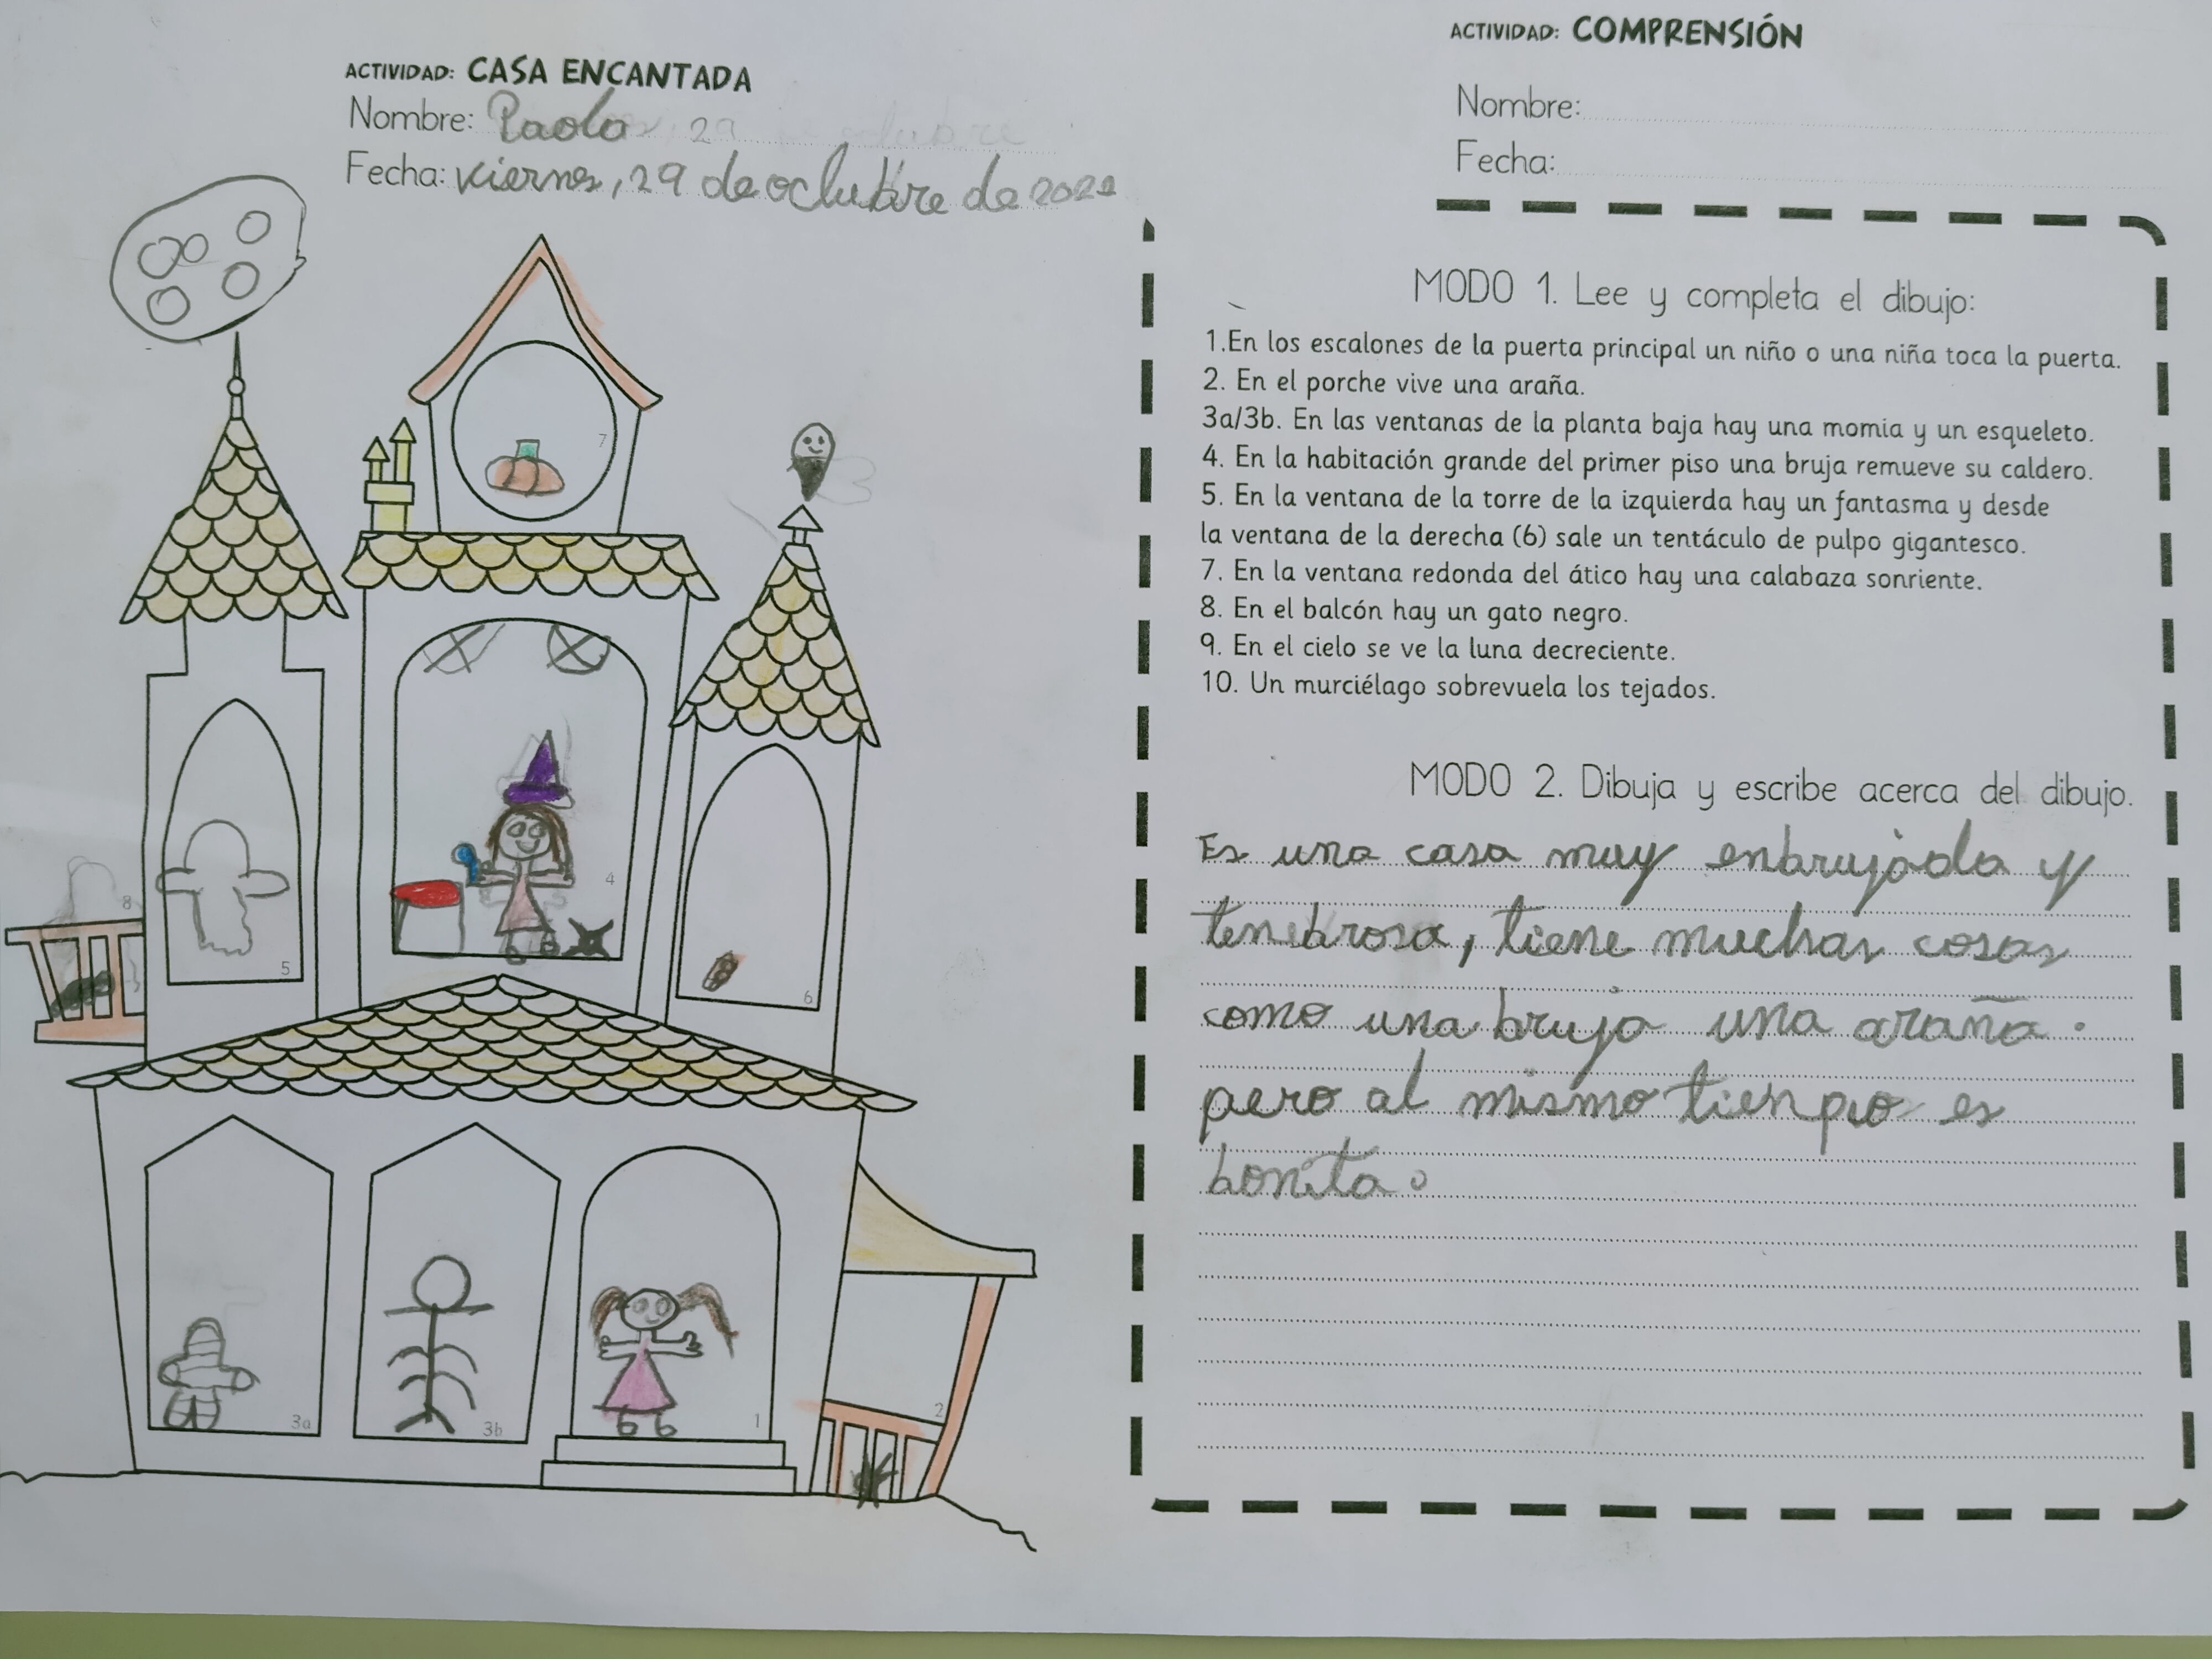 ACTIVIDAD: CASA ENCANTADA
Nombre: Paola 29
Fecha: viernes, 29 de octubre de 2021
7
4
5
6
8
3a
3b
1
2
ACTIVIDAD: COMPRENSIÓN
Nombre:
Fecha:
MODO 1. Lee y completa el dibujo:
1.En los escalones de la puerta principal un niño o una niña toca la puerta.
2. En el porche vive una araña.
3a/3b. En las ventanas de la planta baja hay una momia y un esqueleto.
4. En la habitación grande del primer piso una bruja remueve su caldero.
5. En la ventana de la torre de la izquierda hay un fantasma y desde
la ventana de la derecha (6) sale un tentáculo de pulpo gigantesco.
7. En la ventana redonda del ático hay una calabaza sonriente.
8. En el balcón hay un gato negro.
9. En el cielo se ve la luna decreciente.
10. Un murciélago sobrevuela los tejados.
MODO 2. Dibuja y escribe acerca del dibujo.
Es una casa muy enbrujada y
tenebrosa, tiene muchas cosas
como una bruja una araña.
pero al mismo tienpo es
bonita.